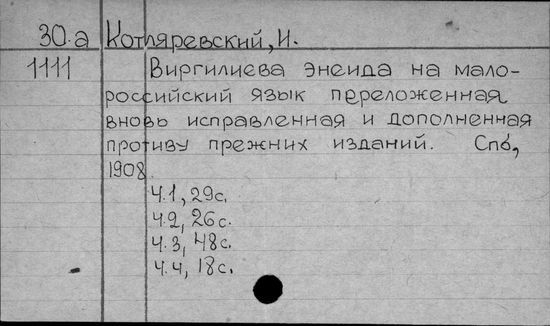 30.а Котляревский, И.
1111 Виргилиева энеида на мало-
российский язык переложенная
вновь исправленная и дополненная
противу прежних изданий. Спб,
1908.
Ч.1, 29с.
Ч.2, 26с.
Ч.3, 48с.
Ч.4, 18с.